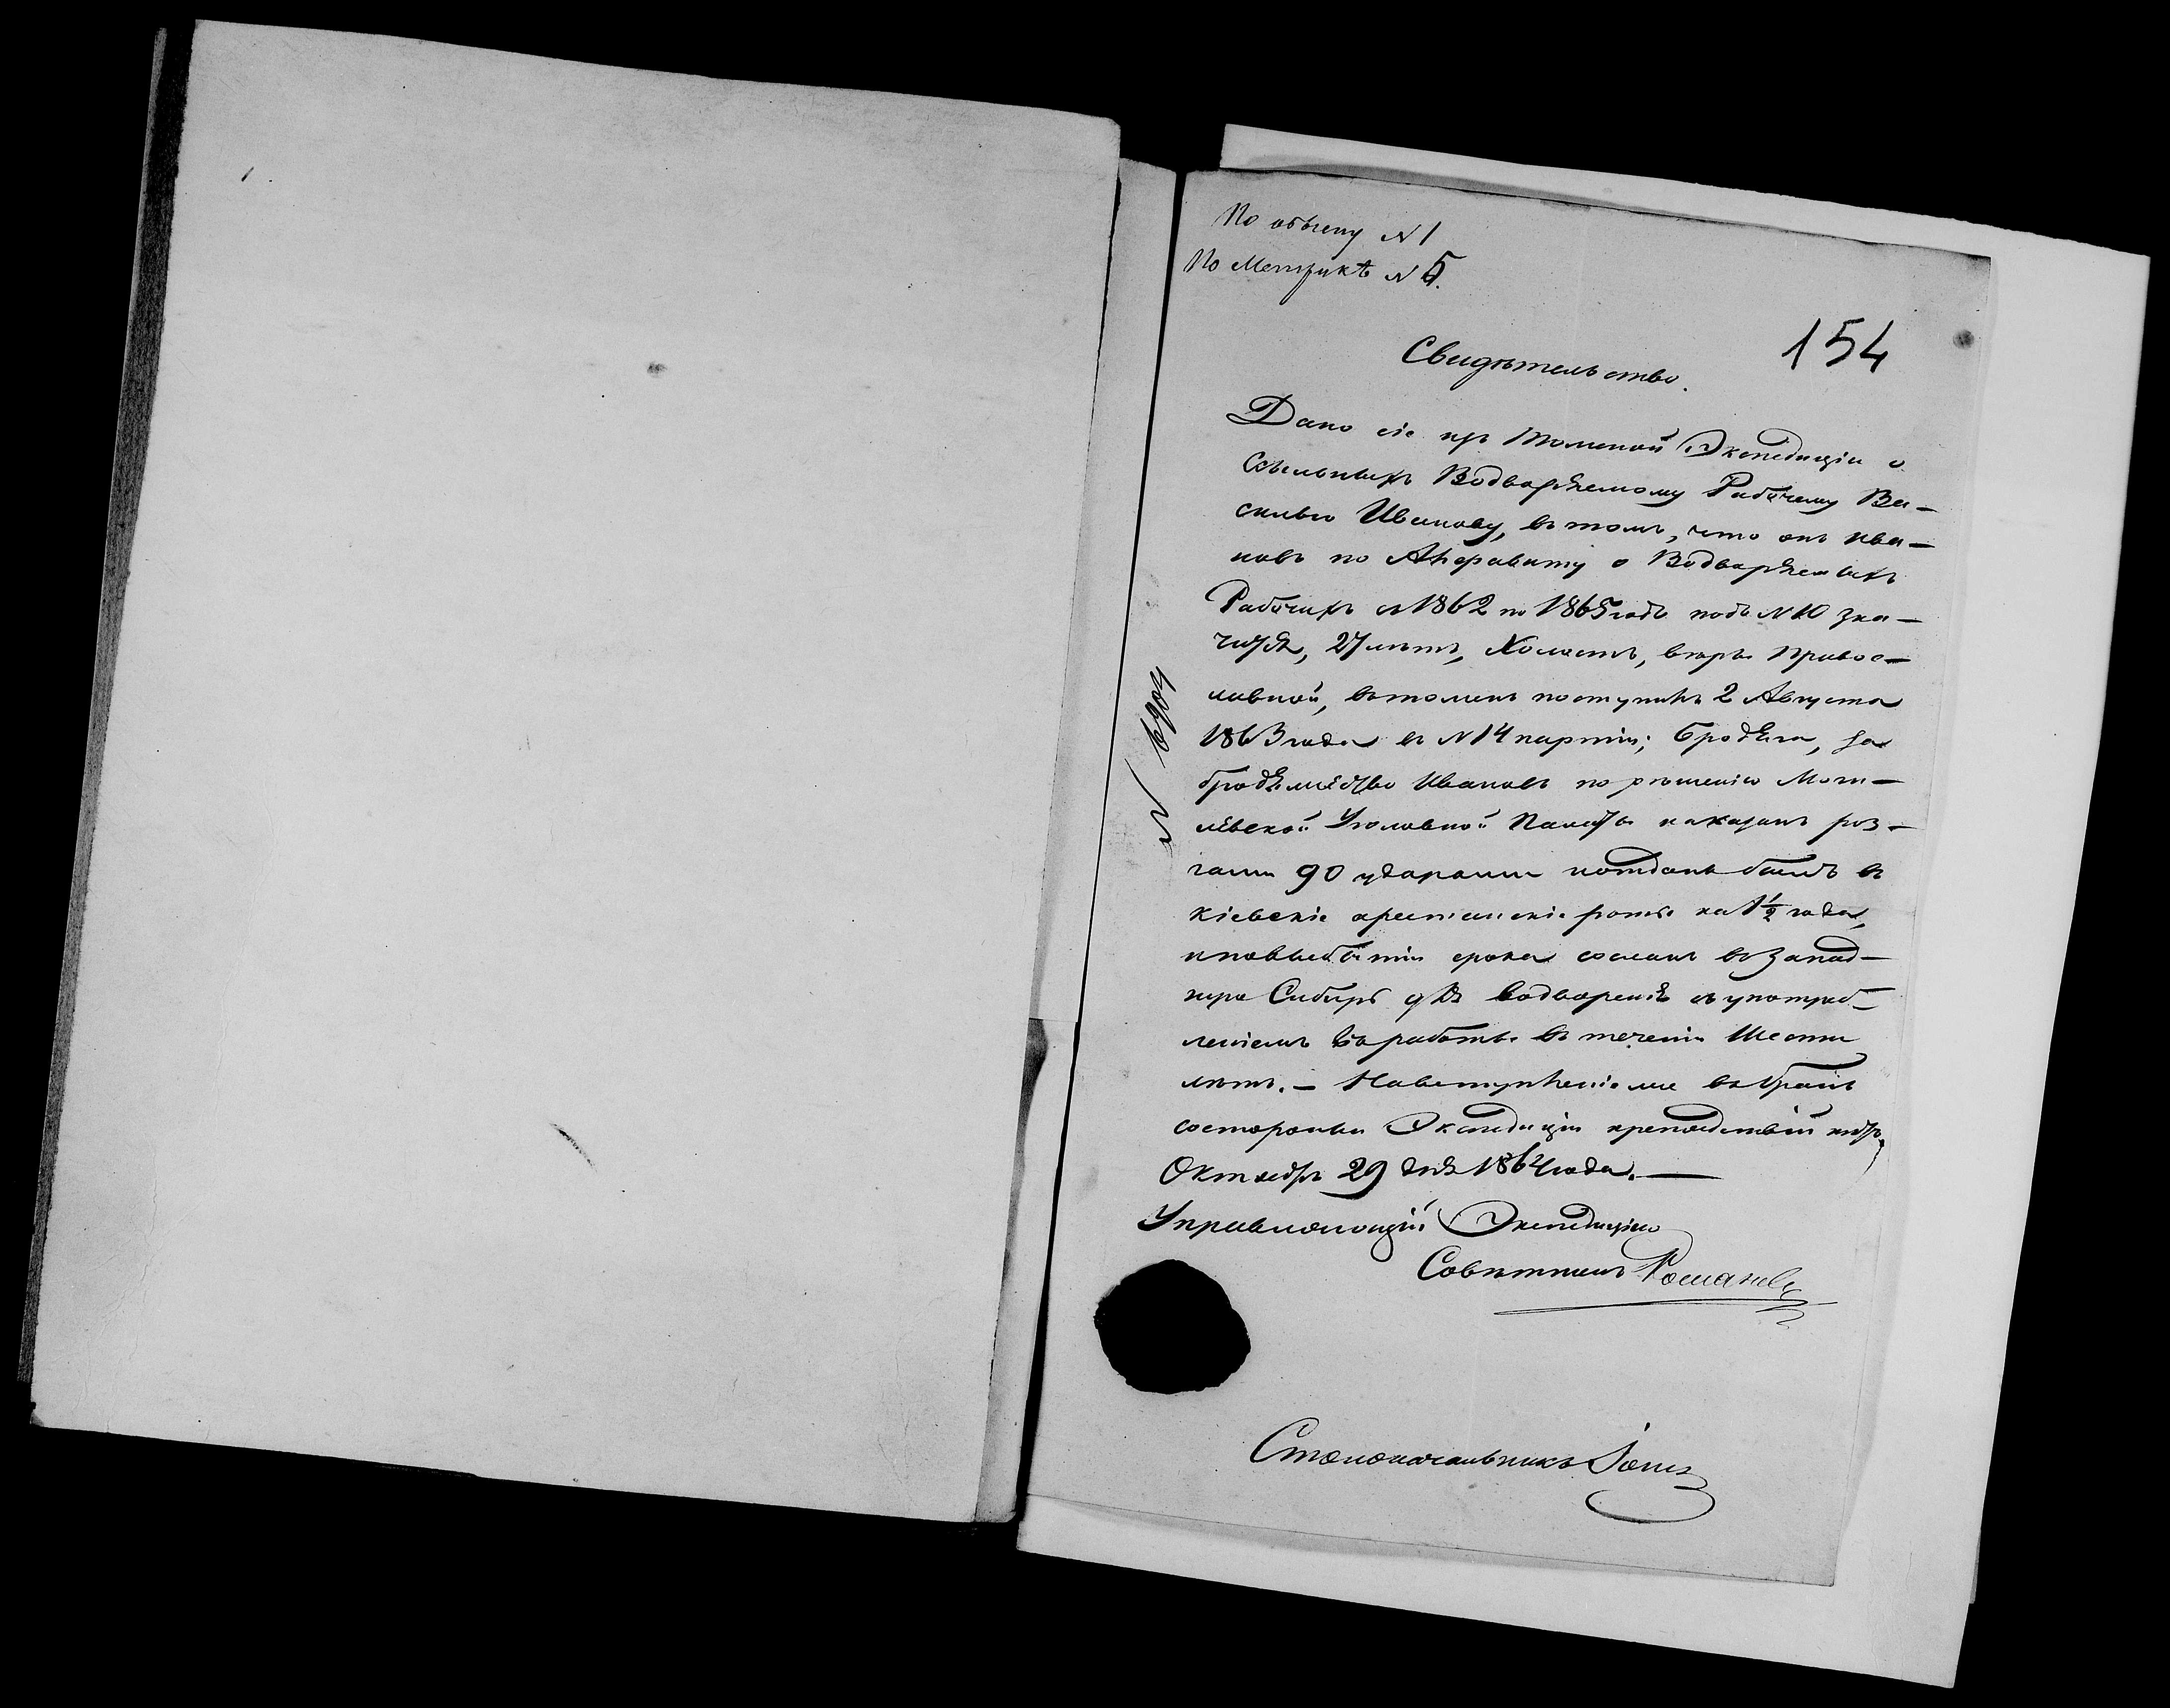 По обыску N 1
По Метрикѣ N 5.
154
Свидѣтельство.
Дано сіе изъ Томской Экспедиціи о
ссыльныхъ Водворяемому Рабочему Ва-
силью Иванову, въ томъ, что онъ Ива-
новъ по Алфавиту о Водворяемыхъ
Рабочихъ съ 1862 по 1865 годъ подъ N 10 зна-
чится, 27 лѣтъ, Холостъ, вѣры Правос-
лавной, въ Томскъ поступилъ 2 Августа
1863 года въ N 14 партіи; бродяга, за
бродяжество Ивановъ по рѣшенію Моги-
левской Уголовной Палаты наказанъ роз-
гами 90 ударами и отданъ былъ въ
Кіевскіе арестанскіе роты на 1½ года,
и по выбытіи срока сосланъ въ Запад-
ную Сибирь для водворенія съ употреб-
леніемъ въ работы въ теченіи Шести
лѣтъ. — На вступленіе же въ бракъ
со стороны Экспедиціи препятствій нѣтъ,
Октября 29 дня 1864 года. —
Управляющій Экспедиціею
Совѣтникъ Романовъ
Столоначальникъ
N 6904